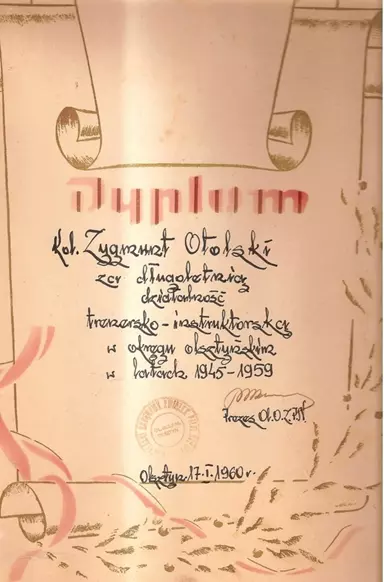 Dyplom
Kol. Zygmunt Otolski
za długoletnią
działalność
trenersko-instruktorską
w okręgu olsztyńskim
w latach 1945-1959
Prezes Ol.O.Z.
Olsztyn 17.I.1960 r.